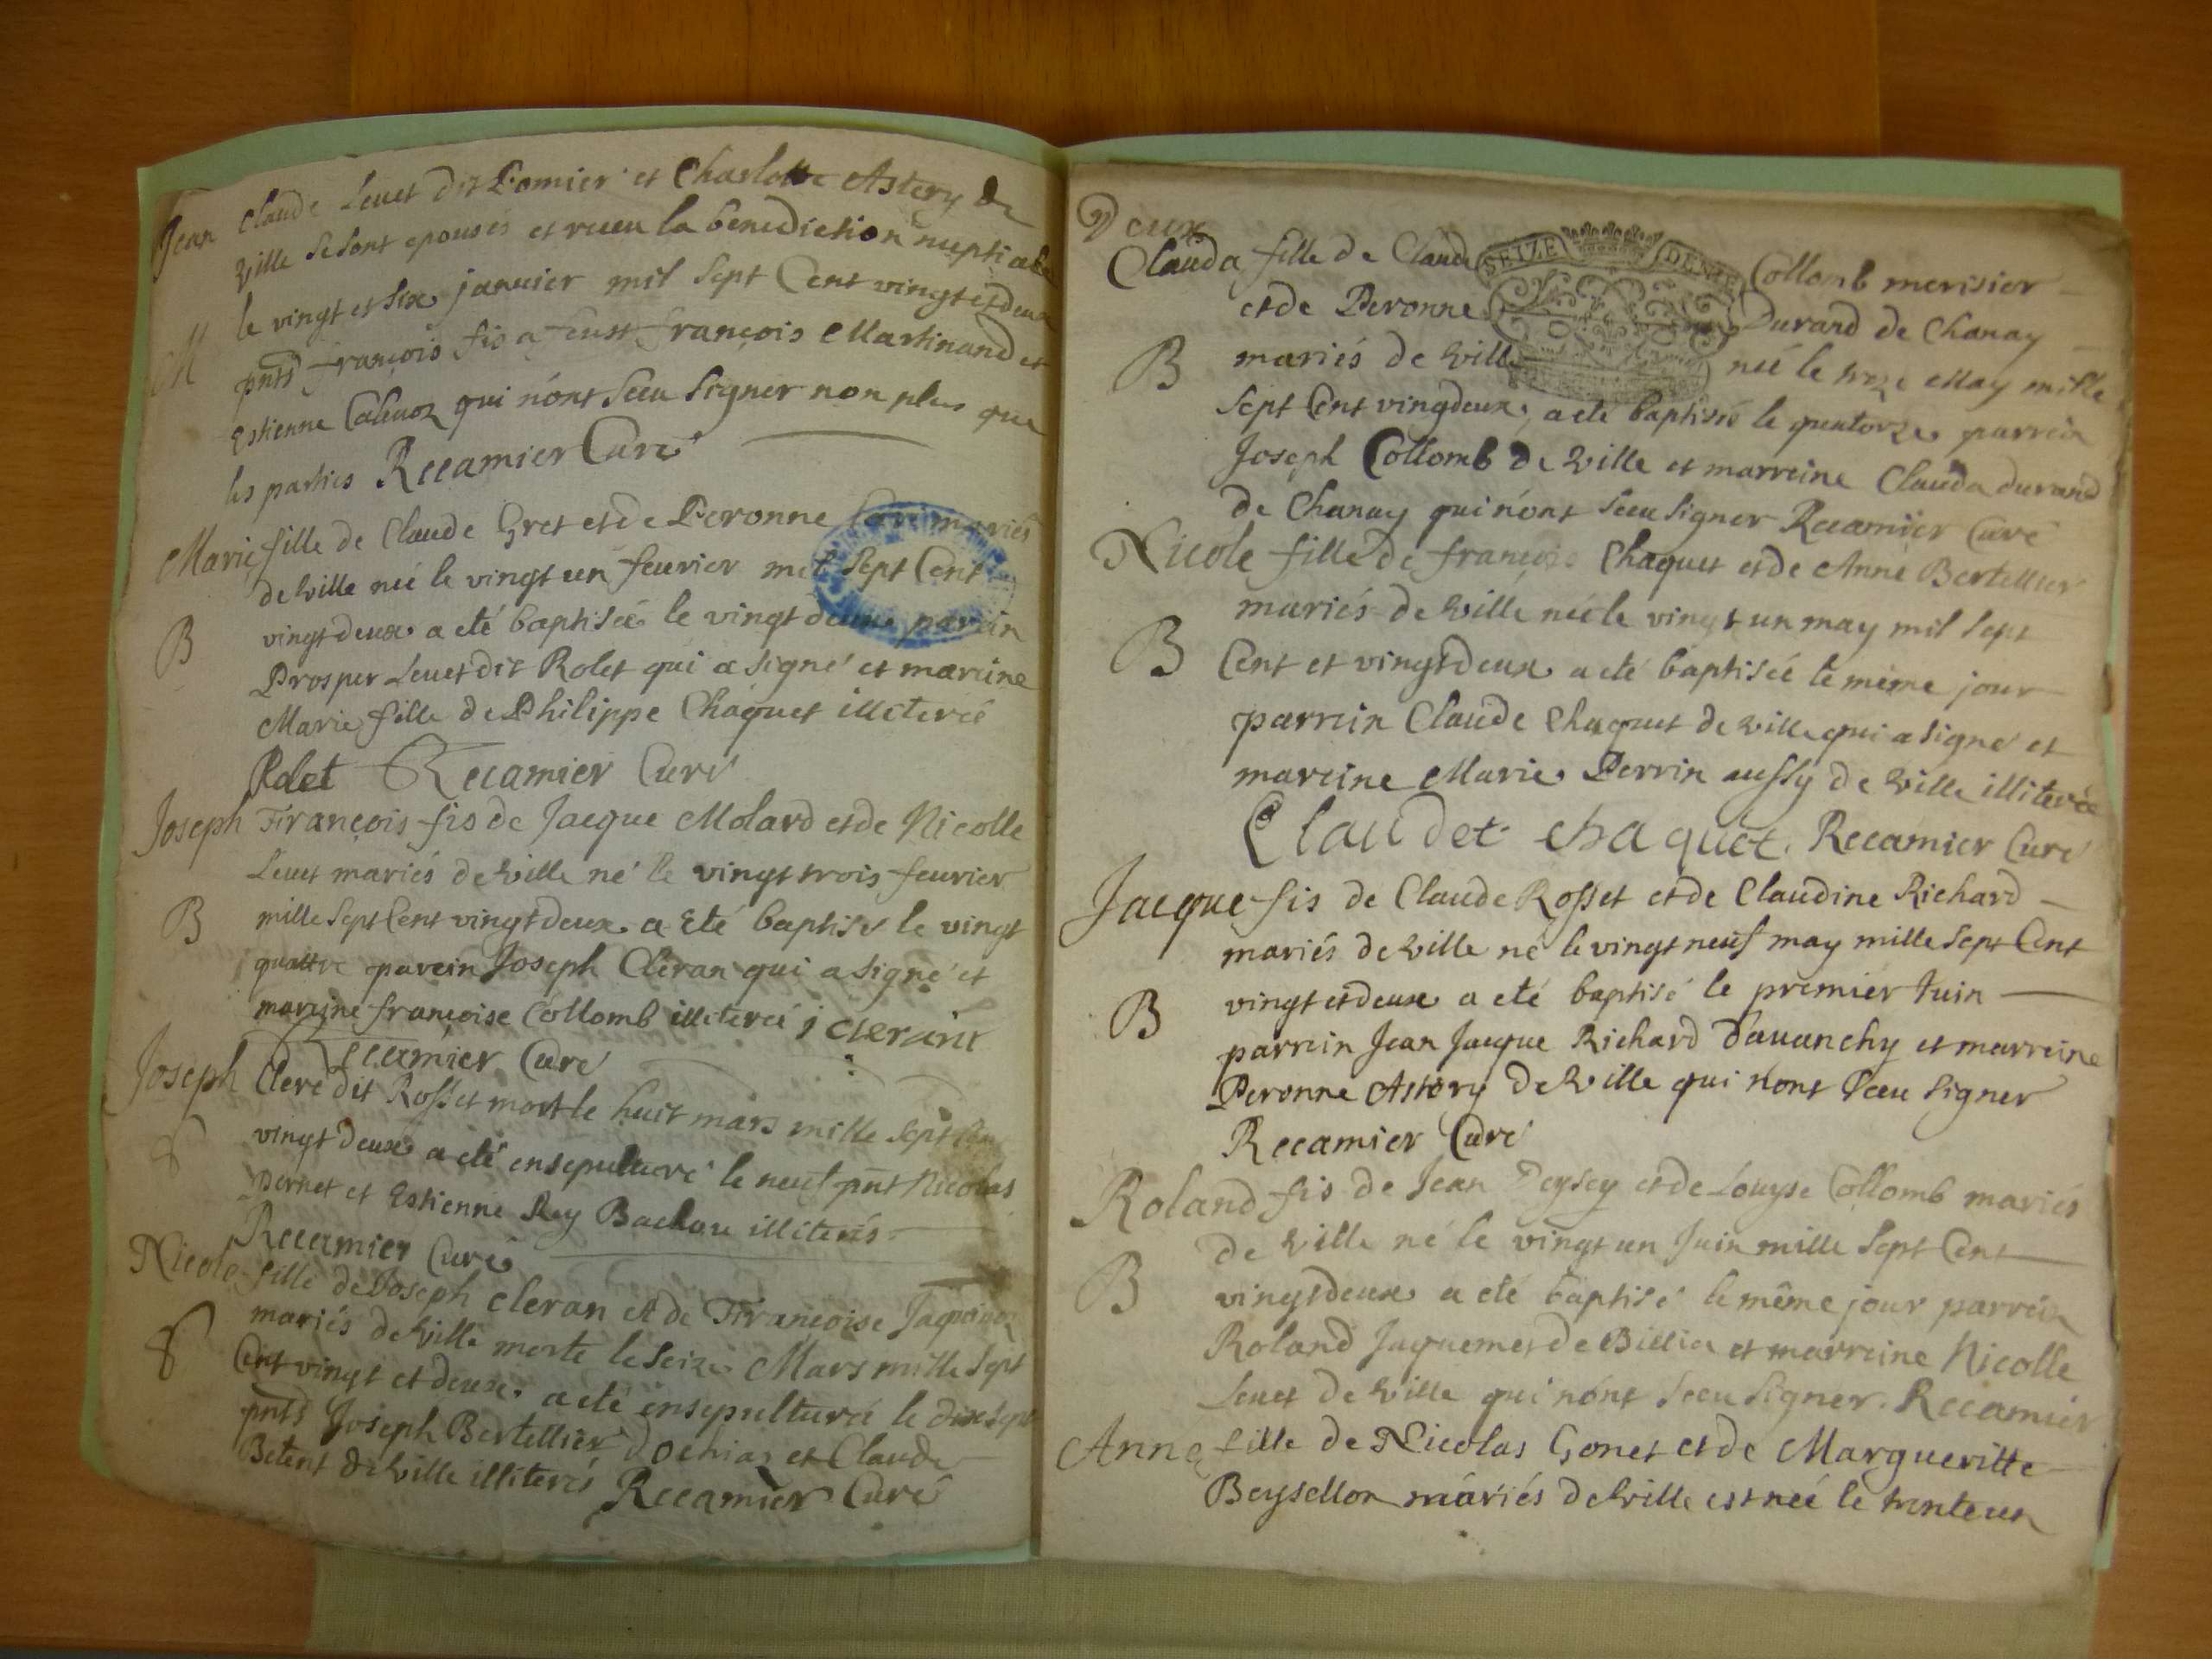 Jean Claude Leuet dit Pomier et Charlotte Astery de
ville se sont epousés et receu la benediction nuptiale
le vingt et six januier mil sept Cent vingt et deux
M
pnts françois fis a feust françois Martinand et
Estienne qui n'ont sceu signer non plus que
les parties Recamier Curé
Marie fille de Claude Gret et de Peronne mariés
de ville née le vingt un feurier mil sept Cent
B
vingt deux a eté baptisée le vingt deux parein
Prosper Leuet dit Rolet qui a signé et mareine
Marie fille de Philippe Chaquet illiterée
Rolet Recamier Curé
Joseph François fis de Jacque Molard et de Nicolle
Leuet mariés de ville né le vingt trois feurier
B
mille sept Cent vingt deux a Eté baptisé le vingt
quattre parein Joseph Cleran qui a signé et
mareine françoise Collomb illiterée j clerant
Recamier Curé
Joseph Clerc dit Rosset mort le huit mars mille sept
vingt deux a eté ensepulturé le neuf pnt Nicolas
Pernet et Estienne Rey illiterés
Recamier Curé
Nicole fille de Joseph cleran et de Françoise
mariés de ville morte le seize Mars mille sept
Cent vingt et deux a eté ensepulturée le dix sept
pnts Joseph Bertellier d'ochiaz et Claude
Betent de ville illiterés Recamier Curé
Deux
SEIZE DENIE
Clauda fille de Claude Collomb merisier
et de Peronne Durand de Chanay
B
mariés de ville née le treze May mille
sept Cent vingdeux a eté baptisée le quatorze parrein
Joseph Collomb de ville et marreine Clauda durand
de Chanay qui n'ont sceu signer Recamier Curé
Nicole fille de françois Chaquet et de Anne Bertellier
mariés de ville née le vingt un may mil sept
B
Cent et vingt deux a eté baptisée le même jour
parrein Claude Chaquet de ville qui a signé et
mareine Marie Perrin aussy de ville illiterée
Claudet chaquet. Recamier Curé
Jacque fis de Claude Rosset et de Claudine Richard
mariés de ville né le vingt neuf may mille sept Cent
B
vingt et deux a eté baptisé le premier Juin
parrein Jean Jacque Richard d'auanchy et marreine
Peronne Astery de ville qui n'ont sceu signer
Recamier Curé
Roland fis de Jean Peysey et de Louyse Collomb mariés
de ville né le vingt un Juin mille sept Cent
B
vingt deux a eté baptisé le même jour parrein
Roland Juquemet de Billia et marreine Nicolle
Leuet de ville qui n'ont sceu signer. Recamier
Anne fille de Nicolas Gonet et de Margueritte
Beysellon mariés de ville est née le trente un